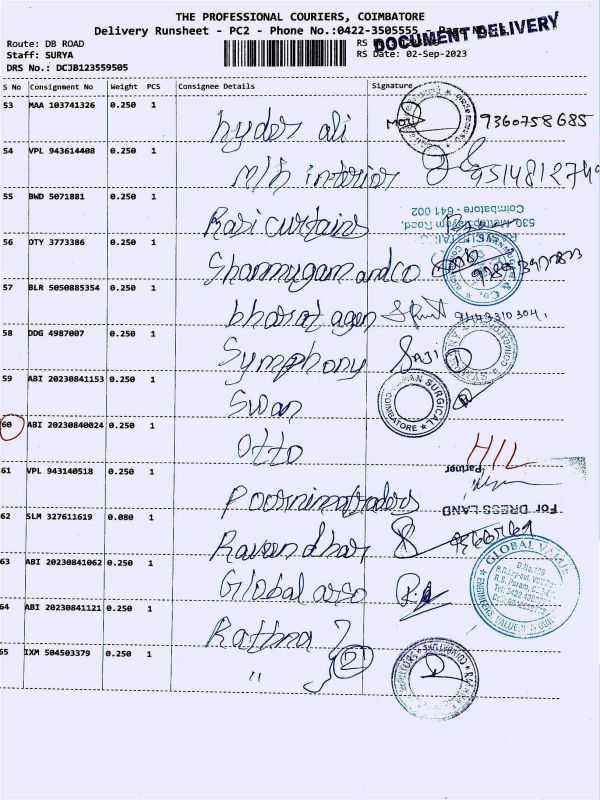 THE PROFESSIONAL COURIERS, COIMBATORE
Delivery Runsheet - PC2 - Phone No.:0422-3505555
DOCUMENT DELIVERY
Route: DB ROAD
Staff: SURYA RS Date: 02-Sep-2023
DRS No.: DCJB123559505
S No Consignment No Weight PCS Consignee Details Signature
53 MAA 103741326 0.250 1 hyder ali 9360758685
54 VPL 943614408 0.250 1 M/h interior
55 BWD 5071881 0.250 1 Rasi curtains
530, Mettupalayam Road,
Coimbatore - 641 002
56 OTY 3773386 0.250 1 Shanmugam and co
57 BLR 5050885354 0.250 1 bharat agen
58 DDG 4987007 0.250 1 Symphony SAJI 1
59 ABI 20230841153 0.250 1 Swan
SURGICAL COIMBATORE
60 ABI 20230840024 0.250 1 Otto H/L
61 VPL 943140518 0.250 1 Poornima traders
Partner
For DRESS LAND
62 SLM 327611619 0.080 1 Raveendhar
63 ABI 20230841062 0.250 1 Global
GLOBAL VALUE ENGINEERS
64 ABI 20230841121 0.250 1 Rathna
65 IXM 504503379 0.250 1 " 2